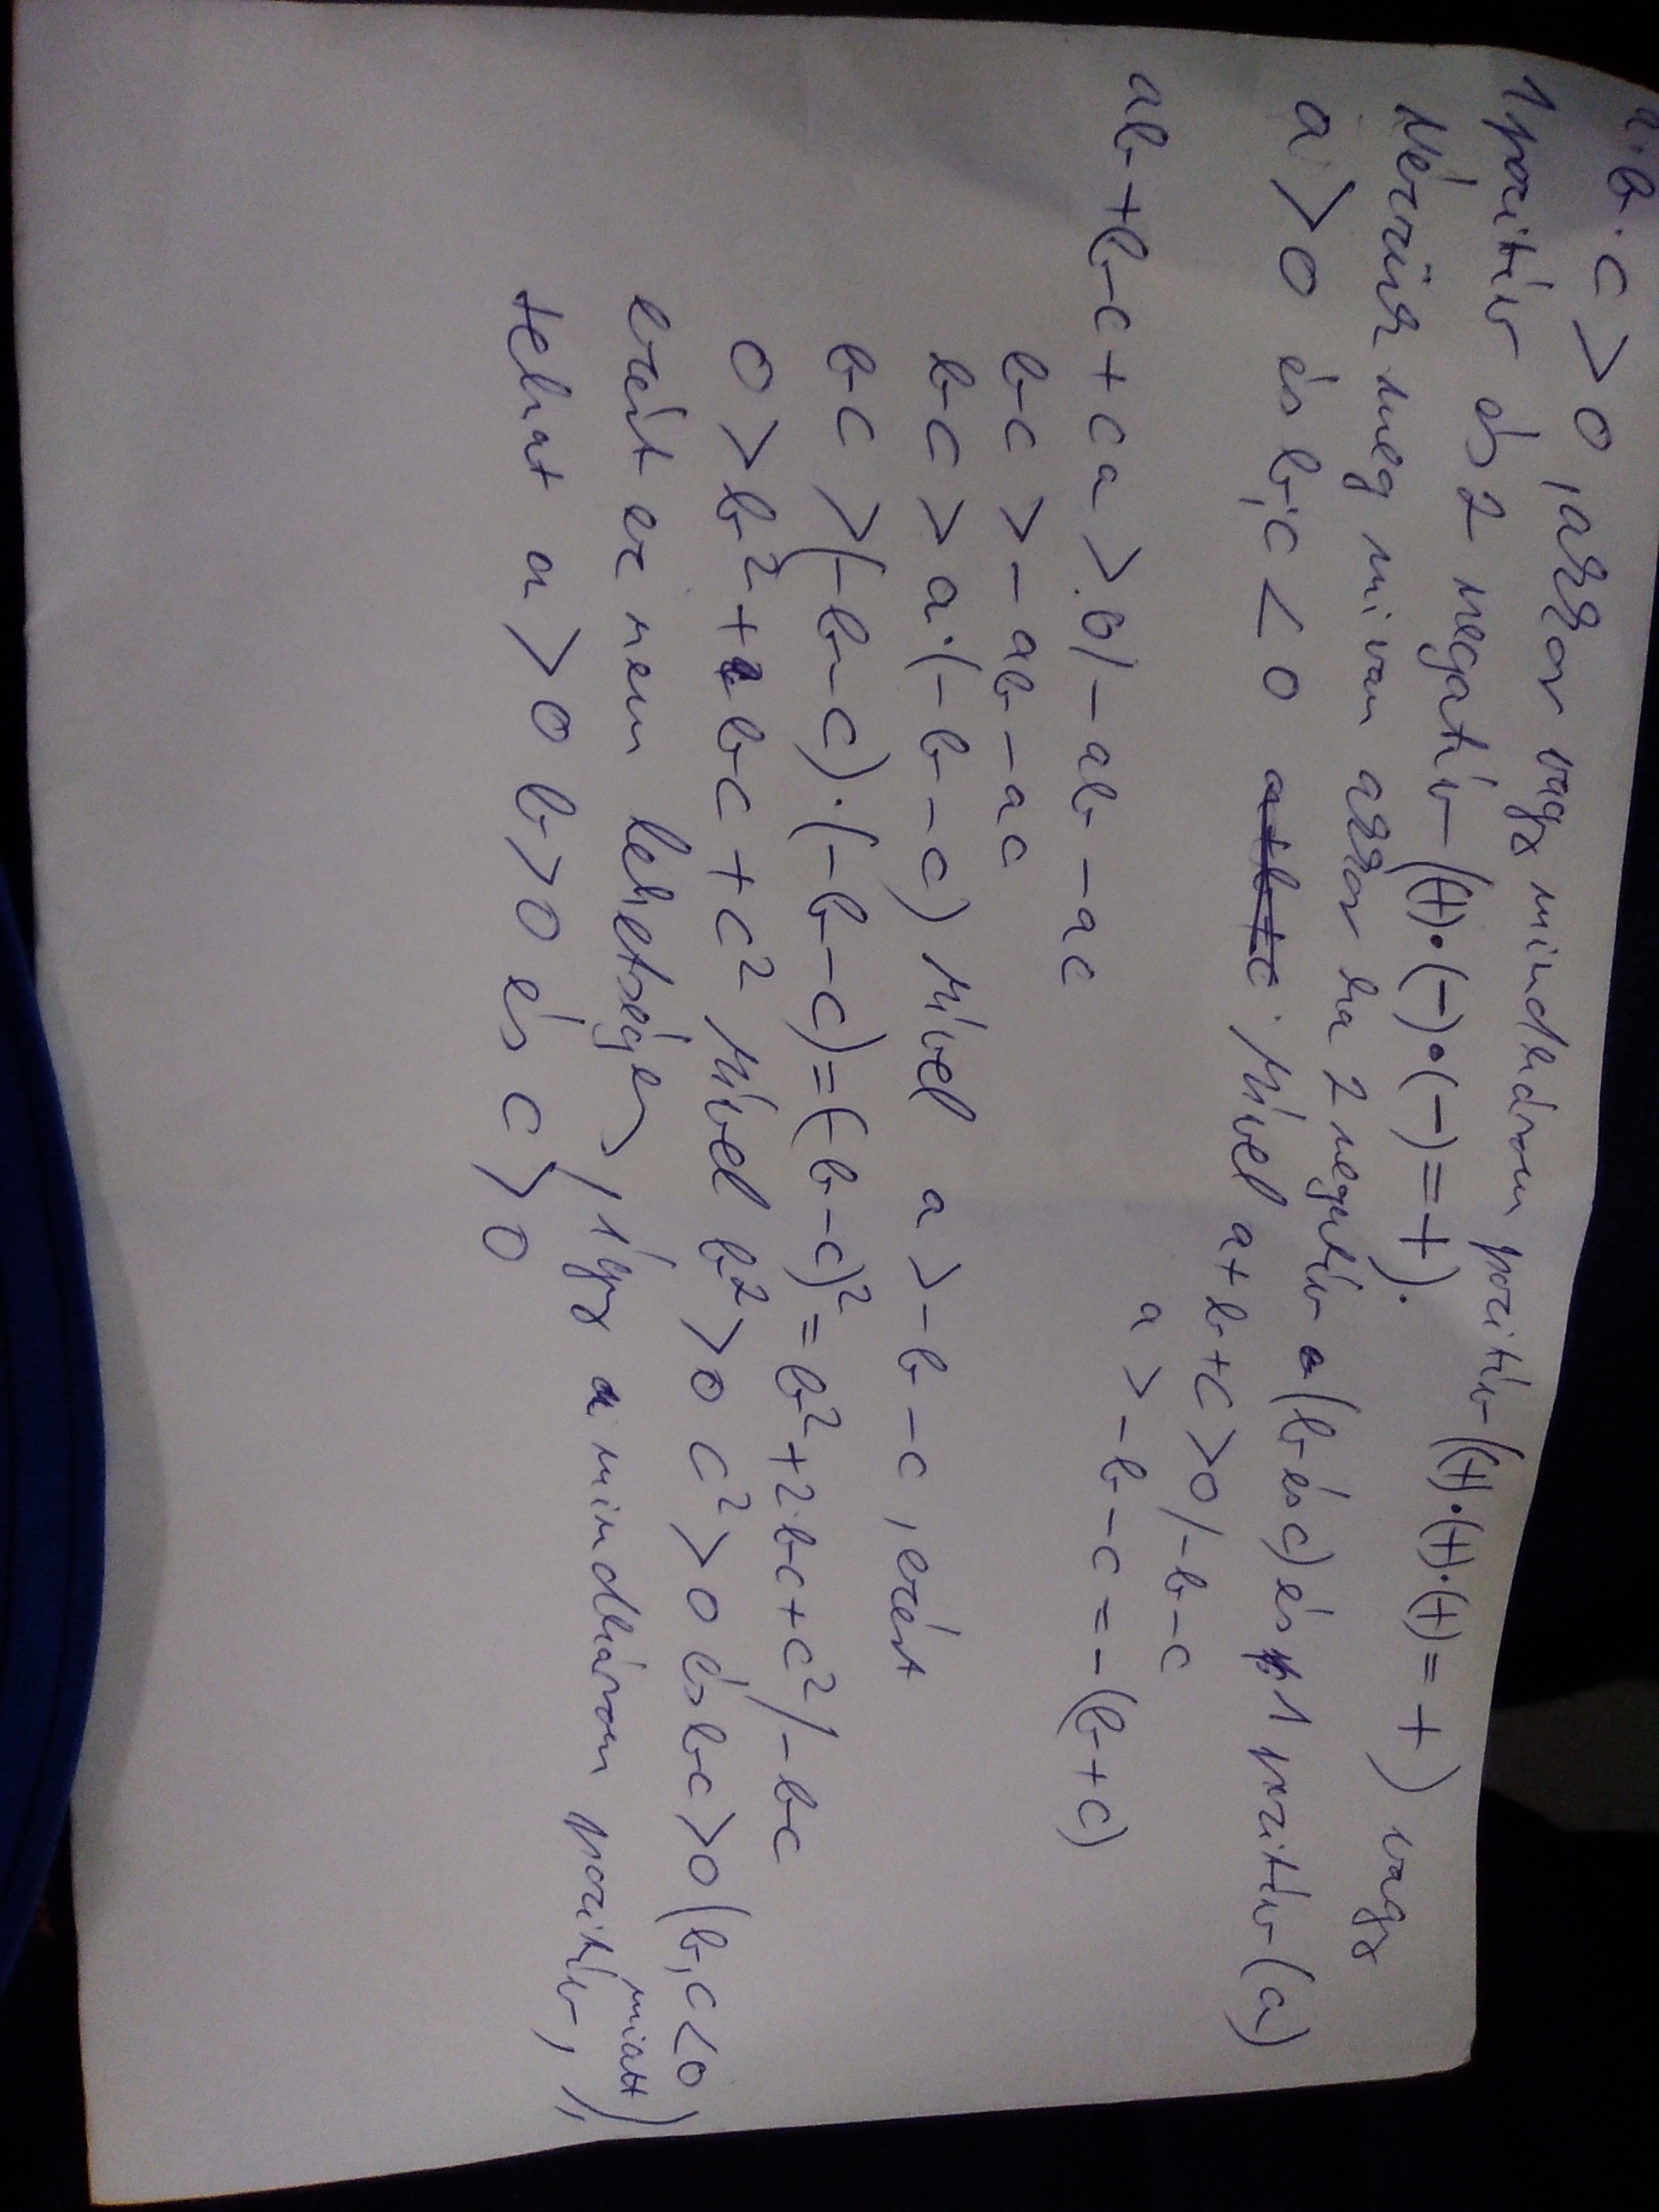 a·b·c>0, akkor vagy mindhárom pozitív ((+)·(+)·(+)=+) vagy
1 pozitív és 2 negatív ((+)·(-)·(-)=+).
Nézzük meg mi van akkor ha 2 negatív (b és c) és 1 pozitív (a)
a>0 és b,c<0 Mivel a+b+c>0/-b-c
a>-b-c=-(b+c)
ab+bc+ca>0/-ab-ac
bc>-ab-ac
bc>a·(-b-c) Mivel a>-b-c, ezért
bc>(-b-c)·(-b-c)=(-b-c)²=b²+2·bc+c²/-bc
0>b²+bc+c² Mivel b²>0 c²>0 és bc>0 (b,c<0 miatt)
ezért ez nem lehetséges, így a mindhárom pozitív,
tehat a>0 b>0 és c>0